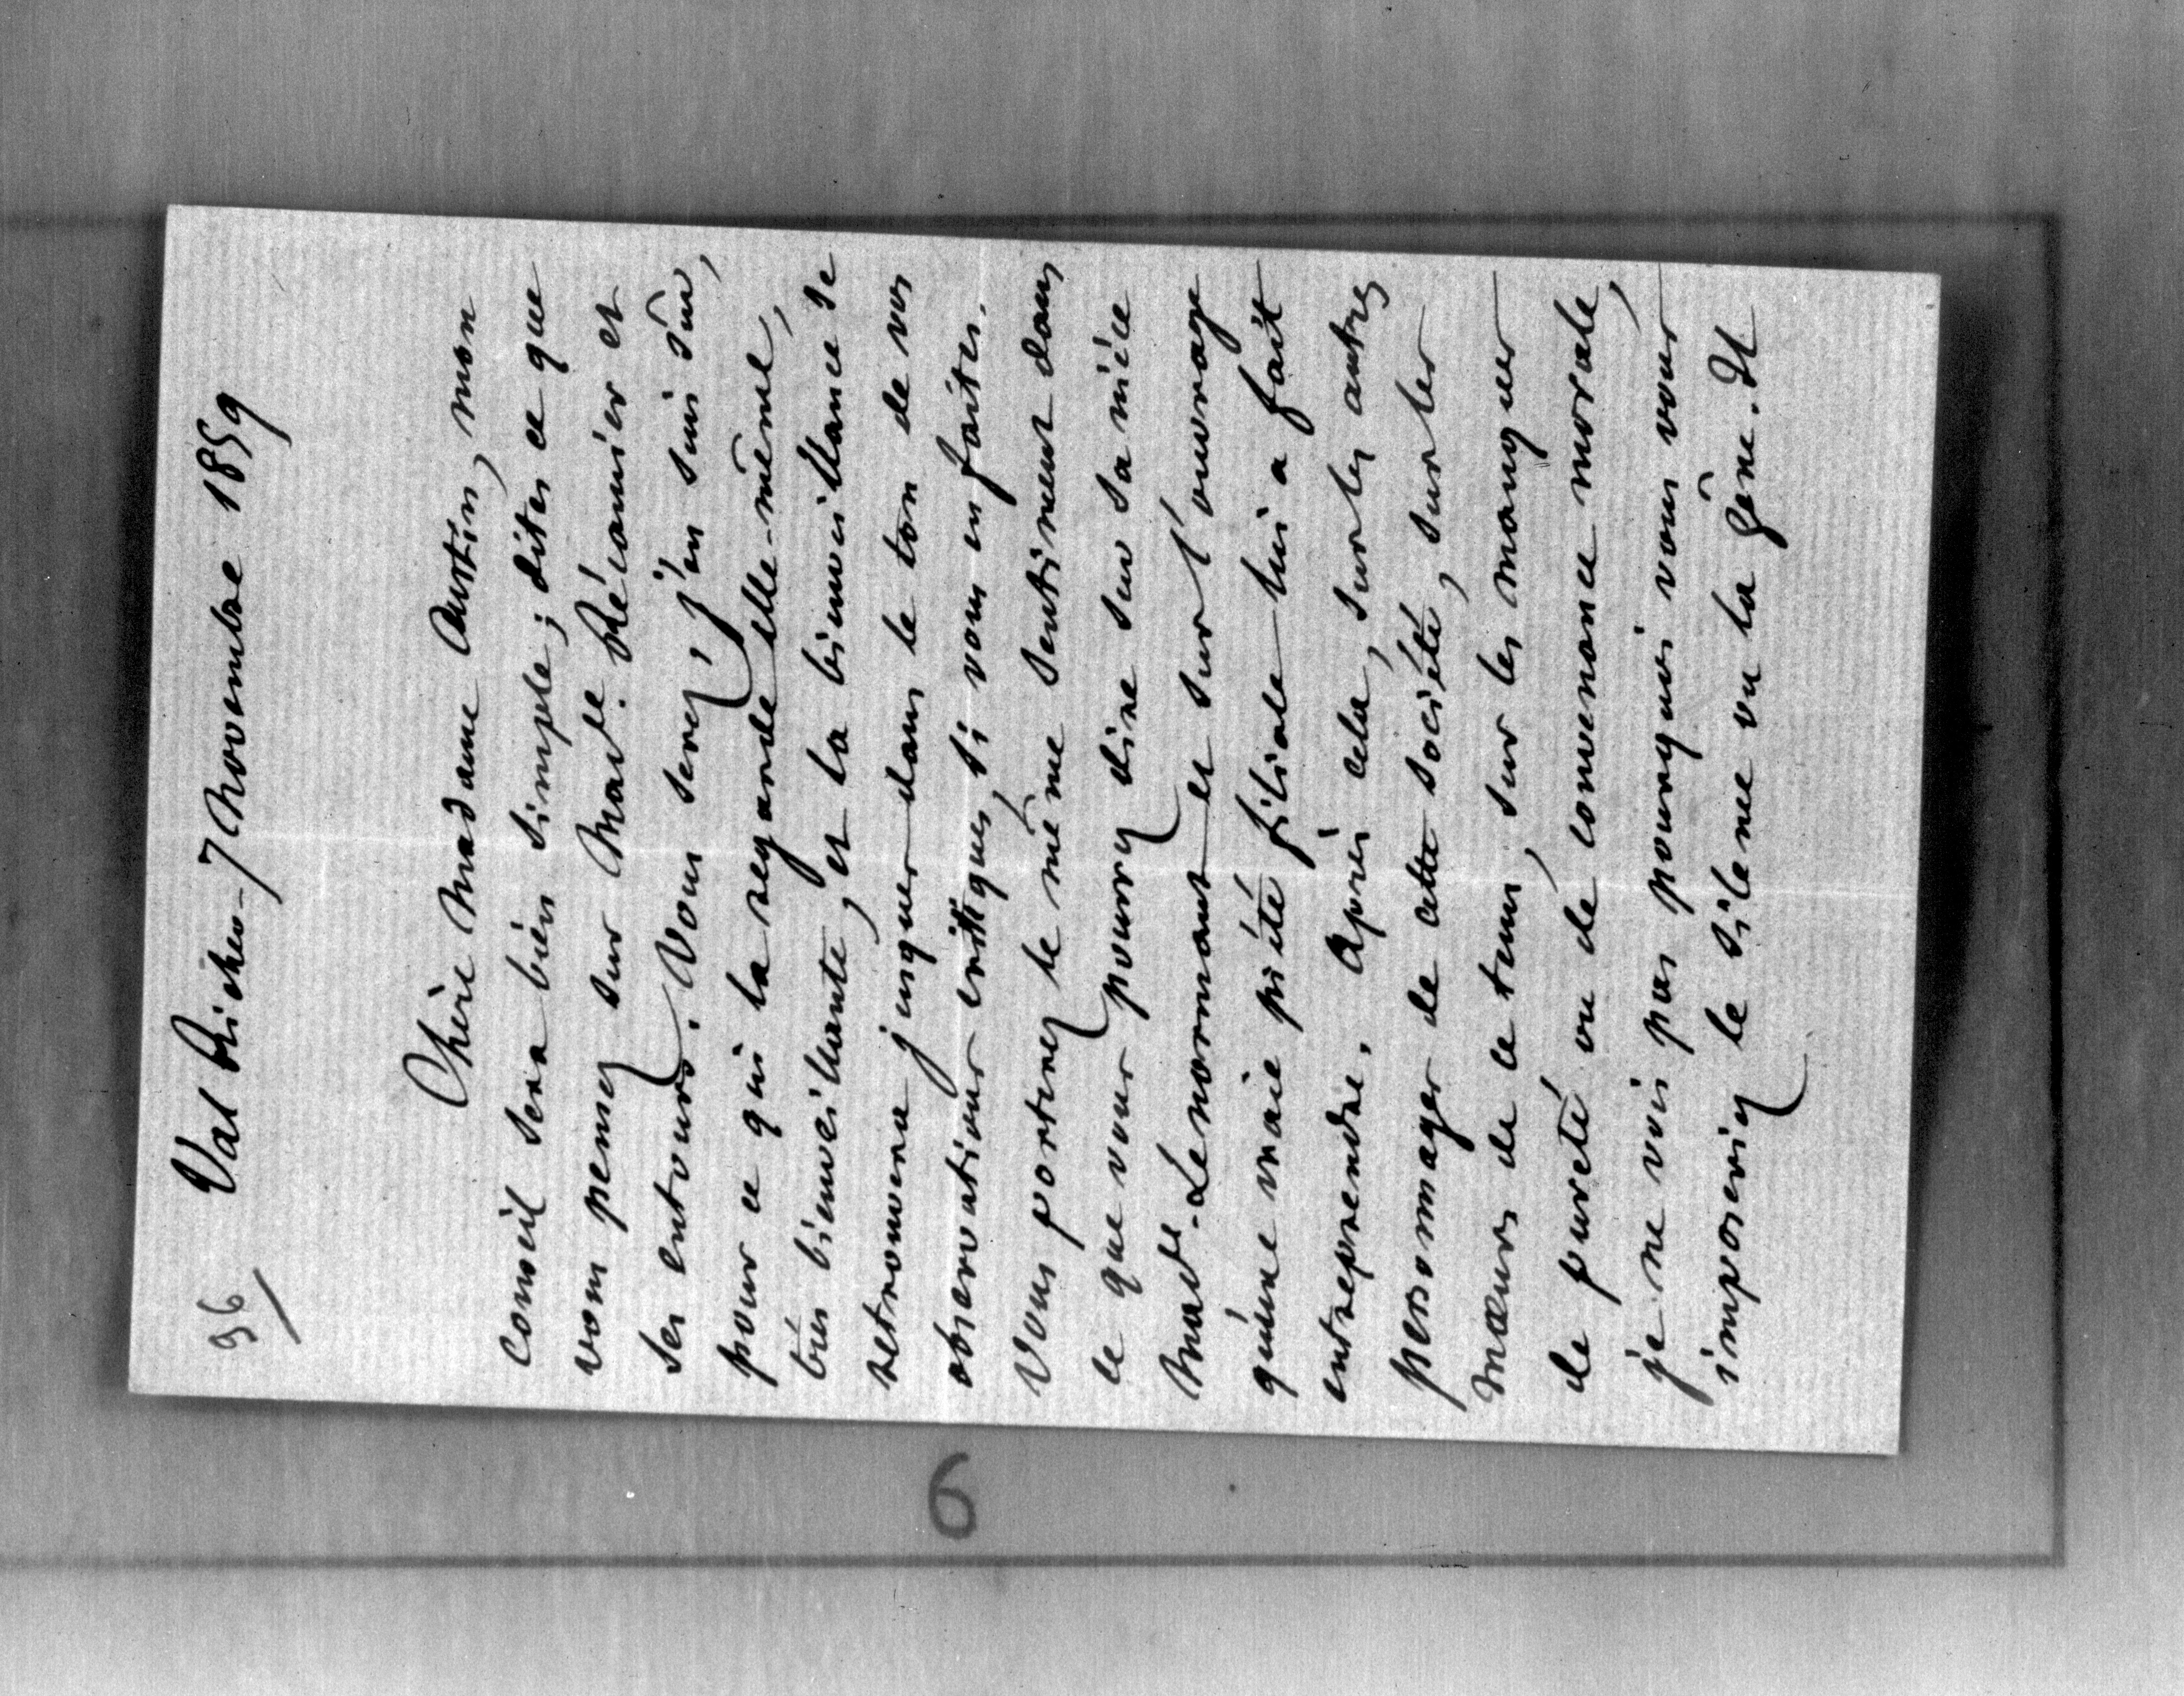 96/ Val Richer - 7 Novembre 1859
Chère Madame Austin, mon
conseil sera bien simple ; dites ce que
vous pensez sur Made. Récamier et
ses entours. Vous serez, j'en suis sûr,
pour ce qui la regarde elle-même,
très bienveillante, et la bienveillance se
retrouvera jusques dans le ton de vos
observations critiques, si vous en faites.
Vous porterez le même sentiment dans
ce que vous pourrez dire sur sa nièce
Made. Lenormant et sur l'ouvrage
qu'une vraie piété filiale lui a fait
entreprendre. Après cela, sur les autres
personnages de cette société, sur les
mœurs de ce tems, sur les manques
de pureté ou de convenance morale,
je ne vois pas pourquoi vous vous
imposeriez le silence ou la gêne. Il
6